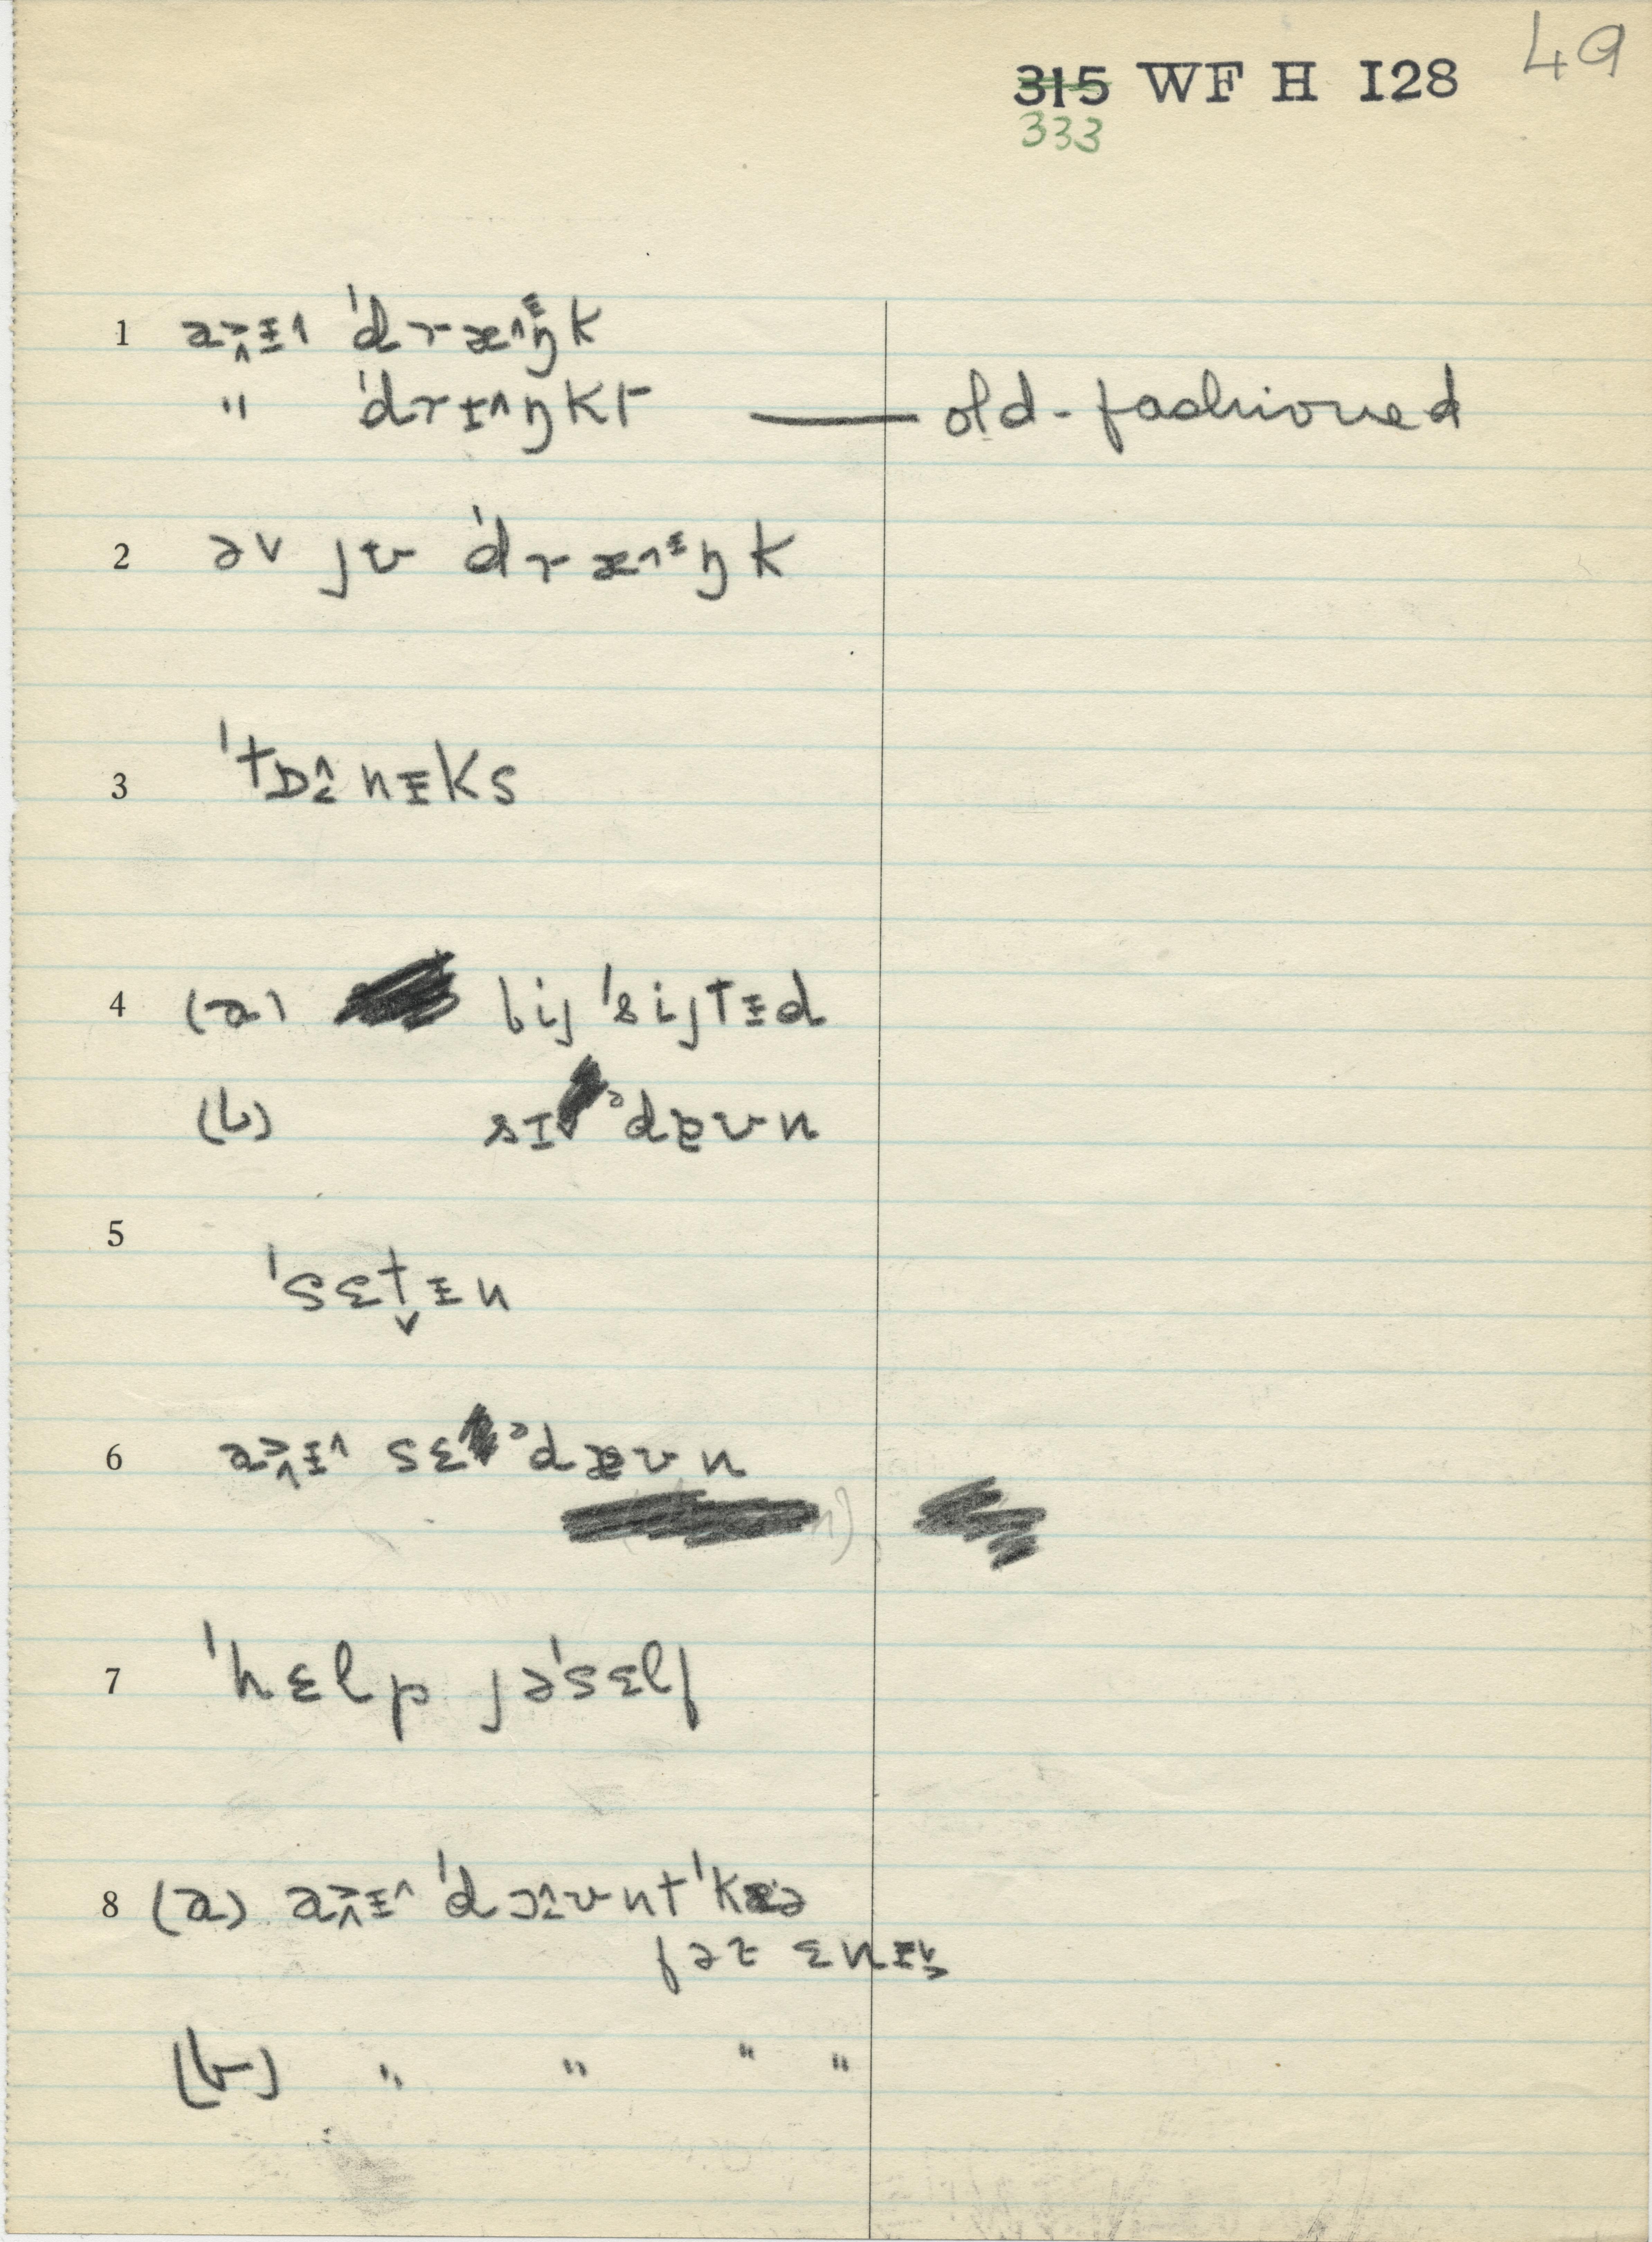 49
315 WF H I28
333
1 aɪ 'dræᶦŋk
" 'drɪŋkt — old-fashioned
2 əv jʊ 'dræᶦŋk
3 'tɒnɪks
4 (a) bij 'sijtɪd
(b) sɪ ᵊdæʊn
5 'sɛt̬ɪn
6 aɪ sɛ ᵊdæʊn
7 'hɛlp jə'sɛlf
8 (a) aɪ 'dɔʊnt 'kɛə
fər ɛnɪ
(b) " " " "